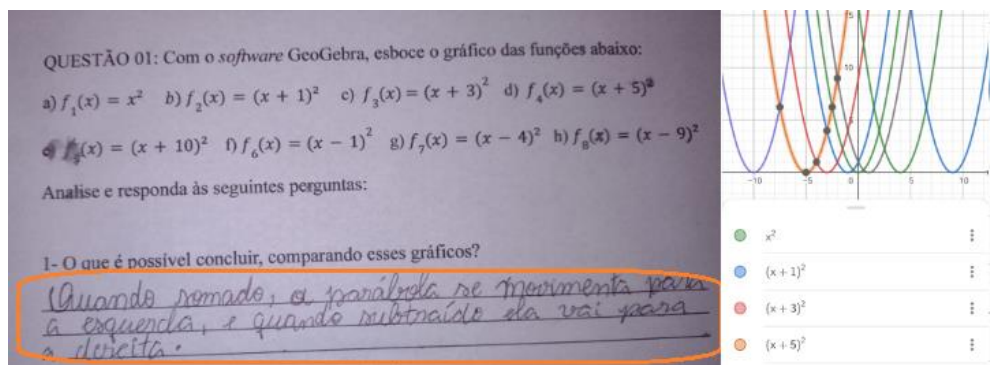 QUESTÃO 01: Com o software GeoGebra, esboce o gráfico das funções abaixo:
a) f₁(x) = x² b) f₂(x) = (x + 1)² c) f₃(x) = (x + 3)² d) f₄(x) = (x + 5)²
f₅(x) = (x + 10)² f) f₆(x) = (x − 1)² g) f₇(x) = (x − 4)² h) f₈(x) = (x − 9)²
Analise e responda às seguintes perguntas:
1- O que é possível concluir, comparando esses gráficos?
Quando somado, a parábola se movimenta para
a esquerda, e quando subtraído ela vai para
a direita.
15
10
5
−10 −5 0 5 10
x²
(x + 1)²
(x + 3)²
(x + 5)²